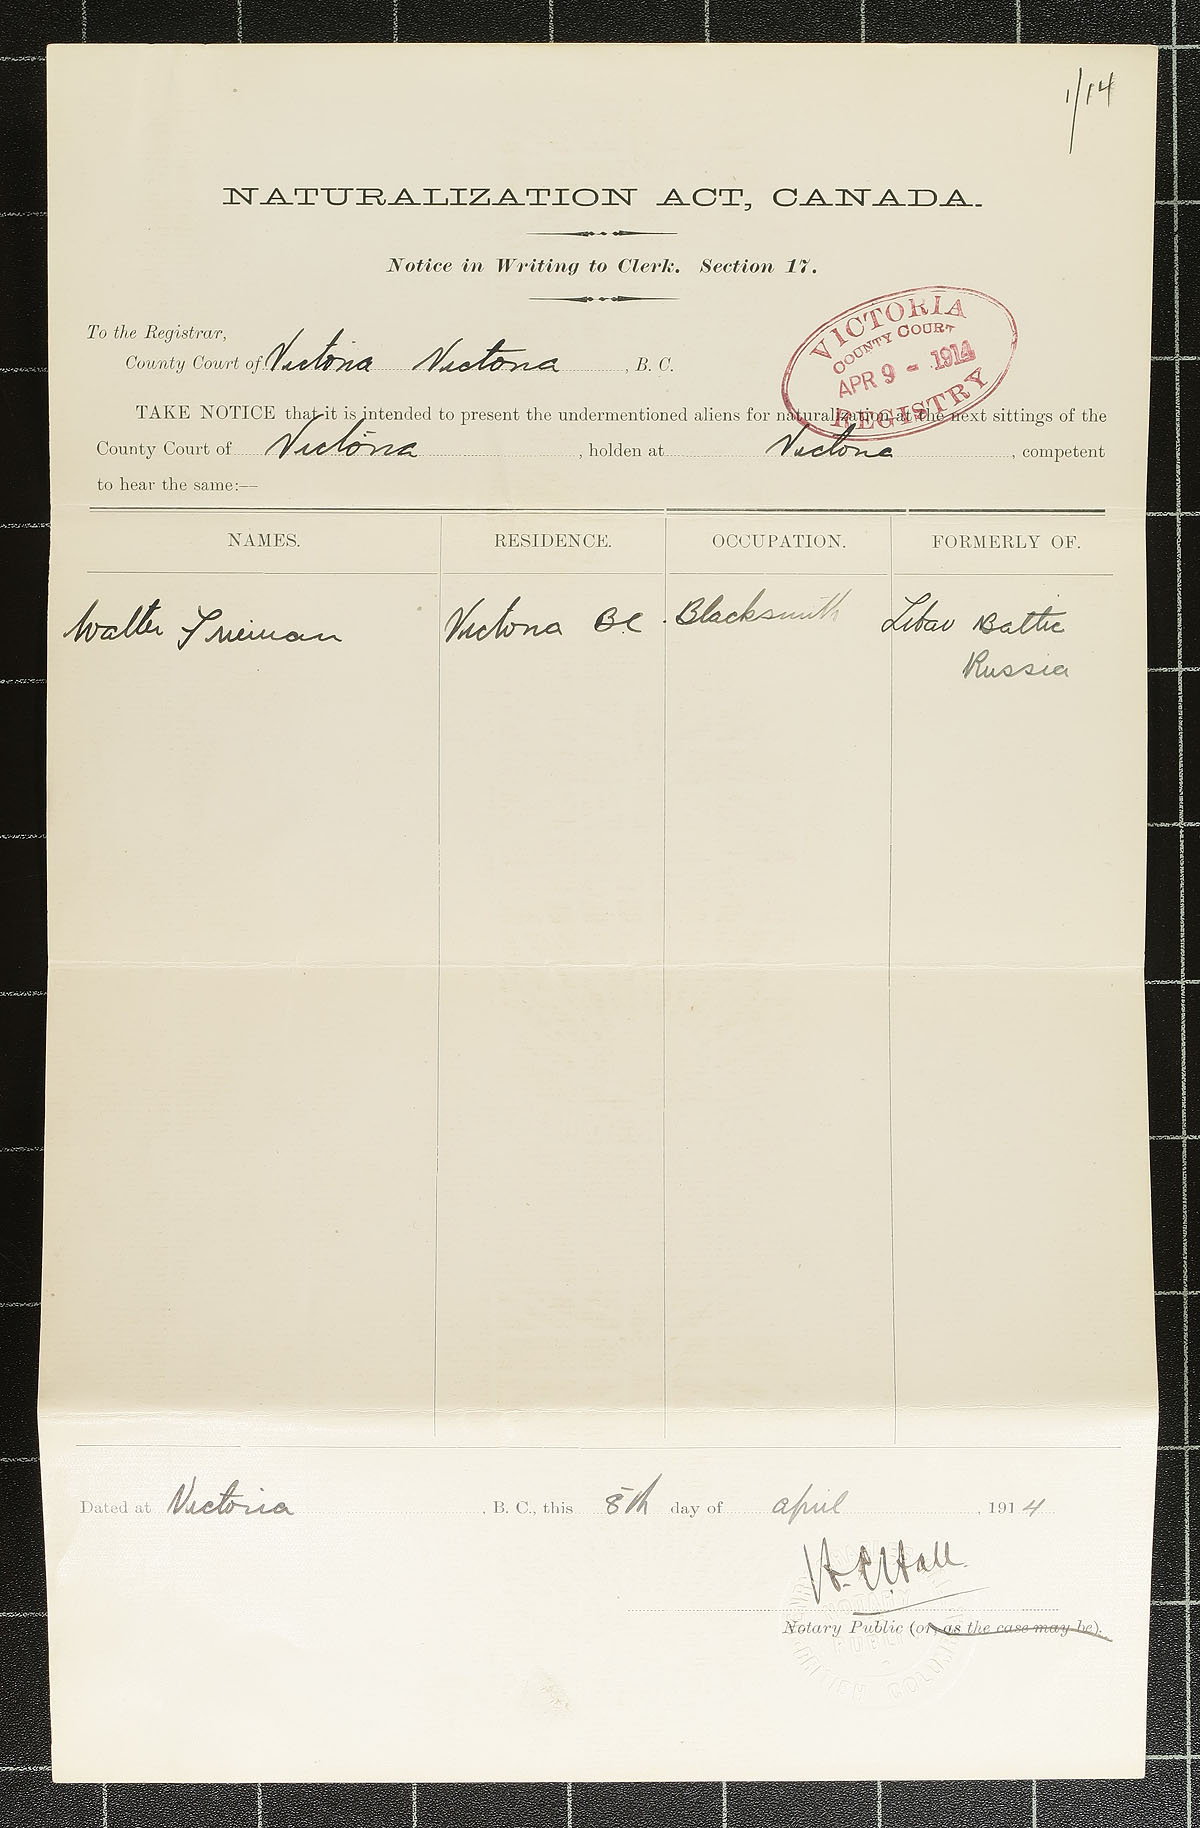 1/14
NATURALIZATION ACT, CANADA.
Notice in Writing to Clerk. Section 17.
To the Registrar,
County Court of Victoria Victoria, B. C.
VICTORIA
COUNTY COURT
APR 9 - 1914
REGISTRY
TAKE NOTICE that it is intended to present the undermentioned aliens for naturalization at the next sittings of the
County Court of Victoria, holden at Victoria, competent
to hear the same:—
NAMES. RESIDENCE. OCCUPATION. FORMERLY OF.
Walter Frieman Victoria B.C. Blacksmith Libau Baltic
Russia
Dated at Victoria, B. C., this 8th day of april, 1914
H. E. Hall
Notary Public (or, as the case may be).
NOTARY
PUBLIC
BRITISH COLUMBIA